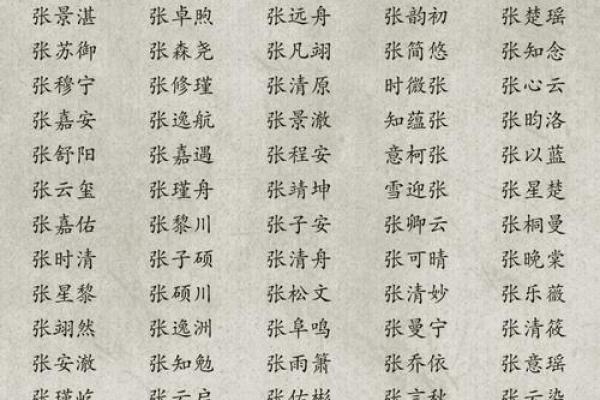 张景湛 张卓煦 张远舟 张韵初 张楚瑶
张苏御 张森尧 张凡翊 张简悠 张知念
张穆宁 张修瑾 张清原 时微张 张心云
张嘉安 张逸航 张景澈 知蕴张 张昀洛
张舒阳 张嘉遇 张程安 意柯张 张以蓝
张云玺 张瑾舟 张靖坤 雪迎张 张星楚
张嘉佑 张黎川 张子安 张卿云 张桐曼
张时清 张子硕 张清舟 张可晴 张晚棠
张星黎 张硕川 张松文 张清妙 张乐薇
张翊然 张逸洲 张阜鸣 张曼宁 张清筱
张安澈 张知勉 张雨箫 张乔依 张意瑶
张瑾屹 张云启 张佑彬 张言秋 张云染